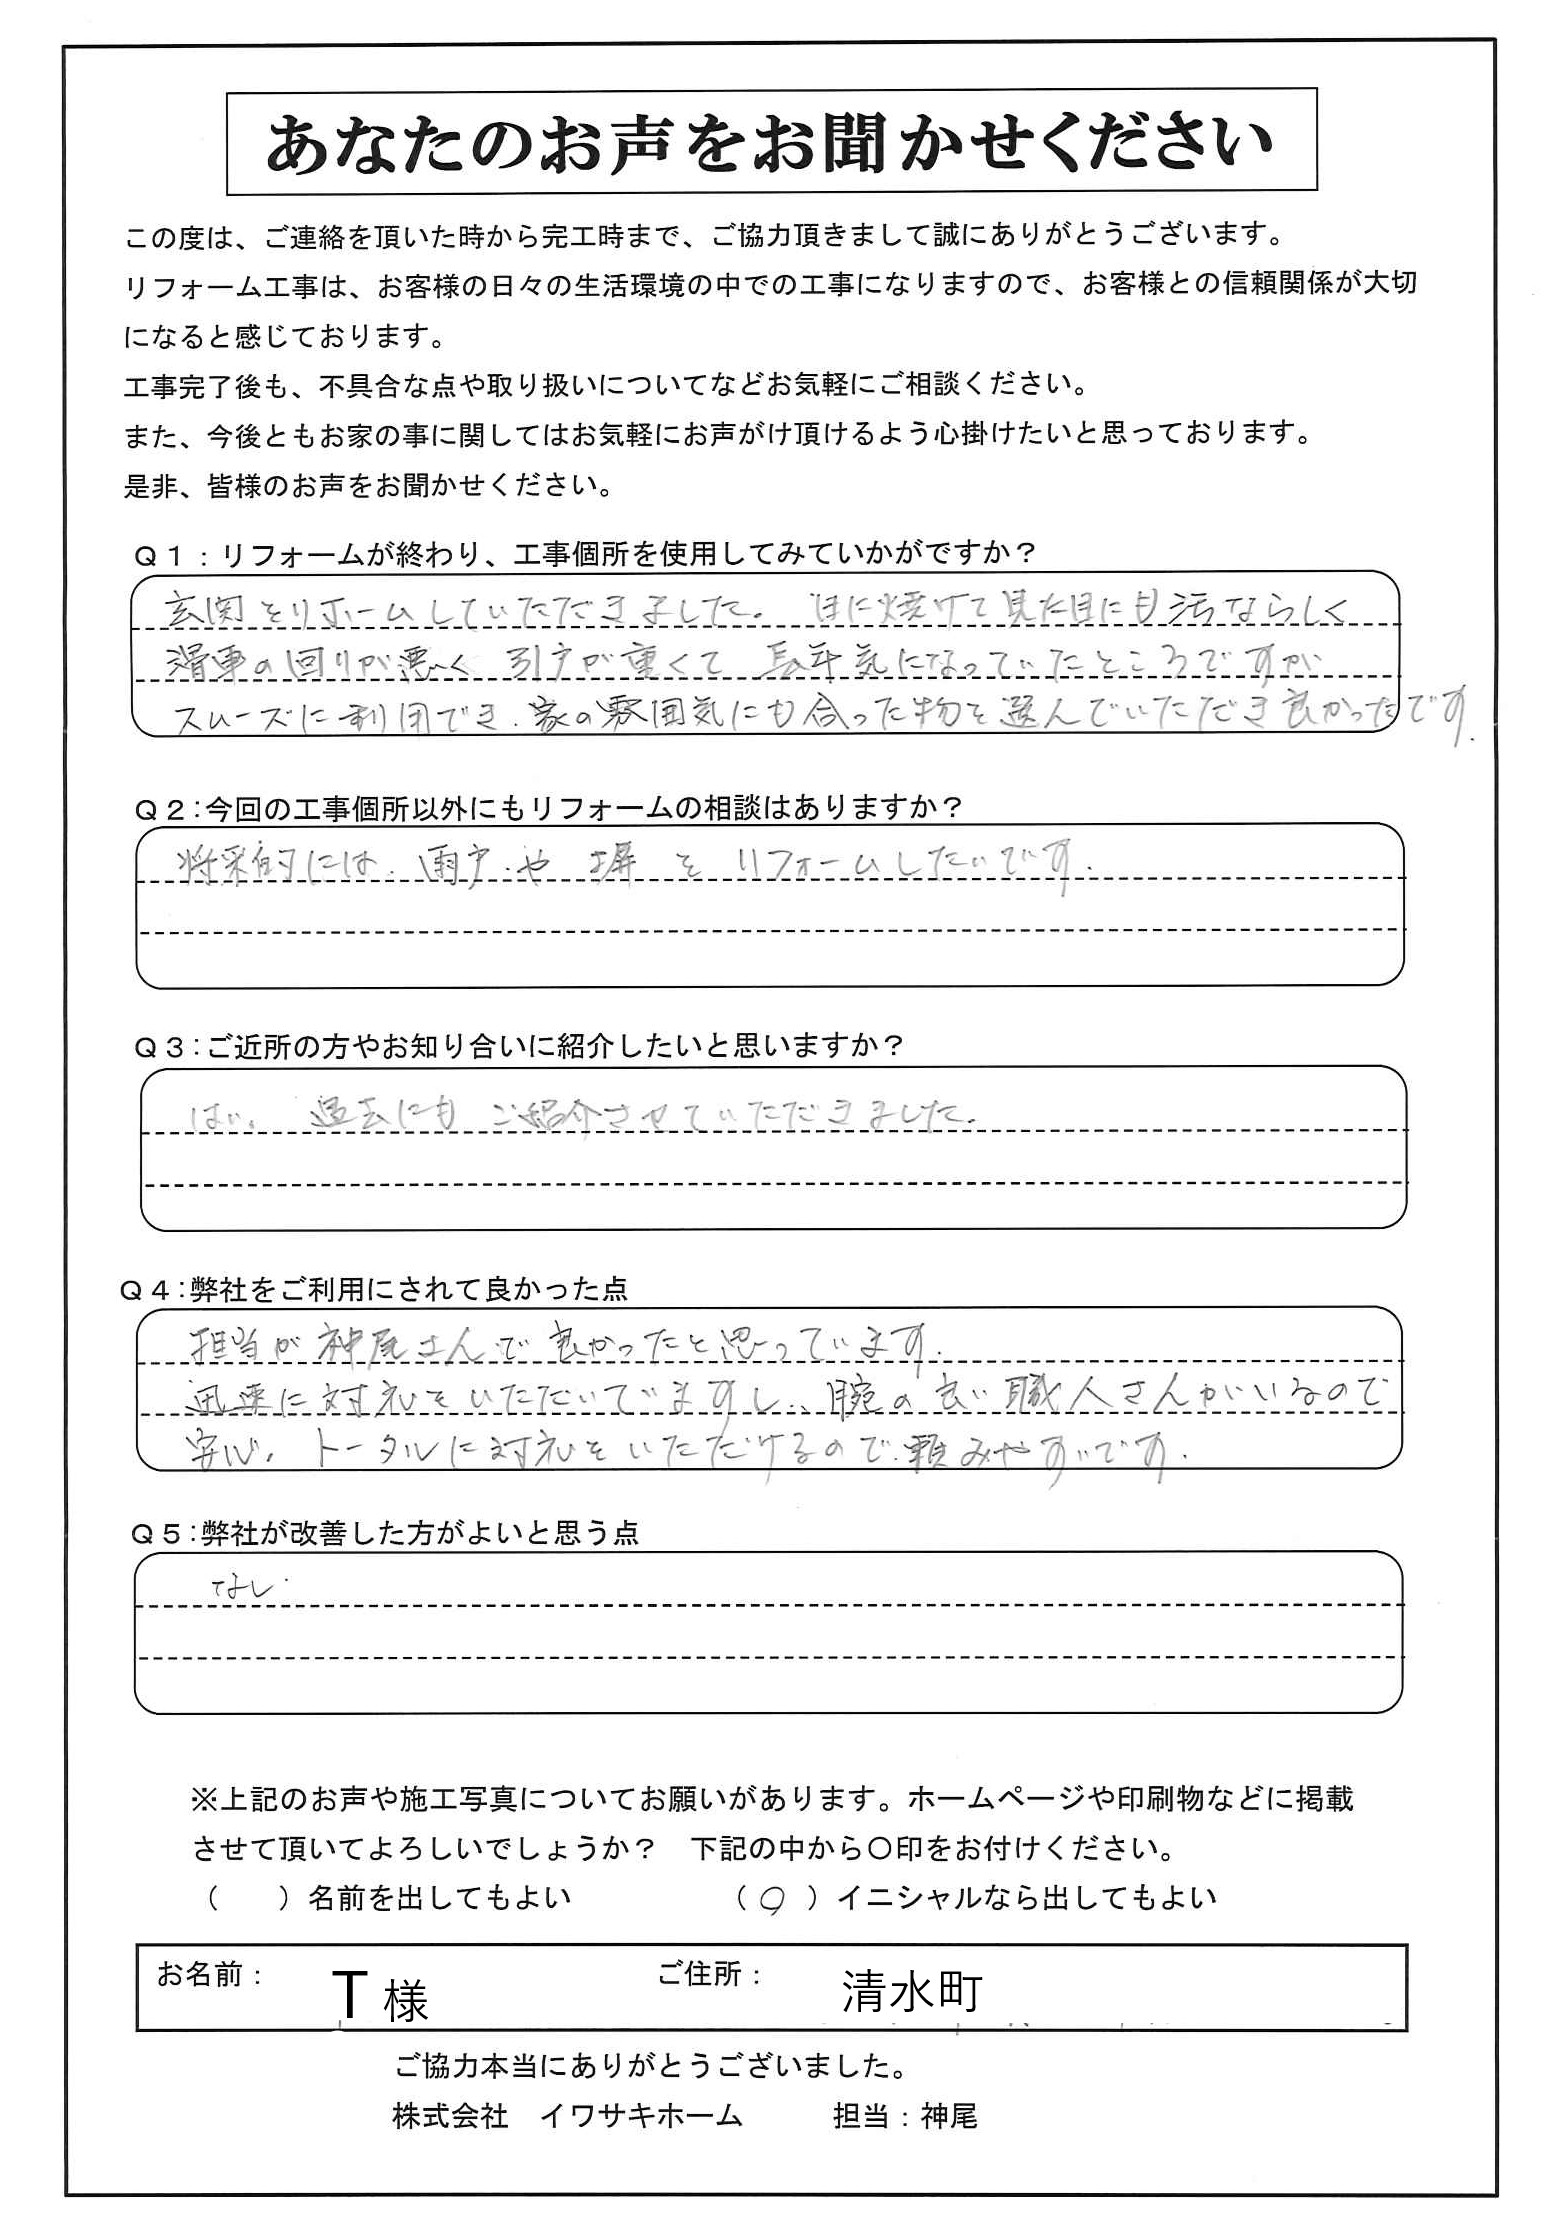 あなたのお声をお聞かせください
この度は、ご連絡を頂いた時から完工時まで、ご協力頂きまして誠にありがとうございます。
リフォーム工事は、お客様の日々の生活環境の中での工事になりますので、お客様との信頼関係が大切
になると感じております。
工事完了後も、不具合な点や取り扱いについてなどお気軽にご相談ください。
また、今後ともお家の事に関してはお気軽にお声がけ頂けるよう心掛けたいと思っております。
是非、皆様のお声をお聞かせください。
Q1：リフォームが終わり、工事個所を使用してみていかがですか？
玄関をリホームしていただきました。日に焼けて見た目にも汚ならしく
滑車の回りが悪く 引戸が重くて 長年気になっていたところですが
スムーズに利用でき、家の雰囲気にも合った物を選んでいただき良かったです。
Q2：今回の工事個所以外にもリフォームの相談はありますか？
将来的には、雨戸、や 塀 を リフォームしたいです。
Q3：ご近所の方やお知り合いに紹介したいと思いますか？
はい。 過去にも ご紹介させていただきました。
Q4：弊社をご利用にされて良かった点
担当が神尾さんで良かったと思っています。
迅速に対応をいただいてますし、腕の良い職人さんがいるので
安心。トータルに対応をいただけるので、頼みやすいです。
Q5：弊社が改善した方がよいと思う点
なし。
※上記のお声や施工写真についてお願いがあります。ホームページや印刷物などに掲載
させて頂いてよろしいでしょうか？ 下記の中から〇印をお付けください。
（　）名前を出してもよい （○）イニシャルなら出してもよい
お名前： T 様 ご住所： 清水町
ご協力本当にありがとうございました。
株式会社 イワサキホーム 担当：神尾